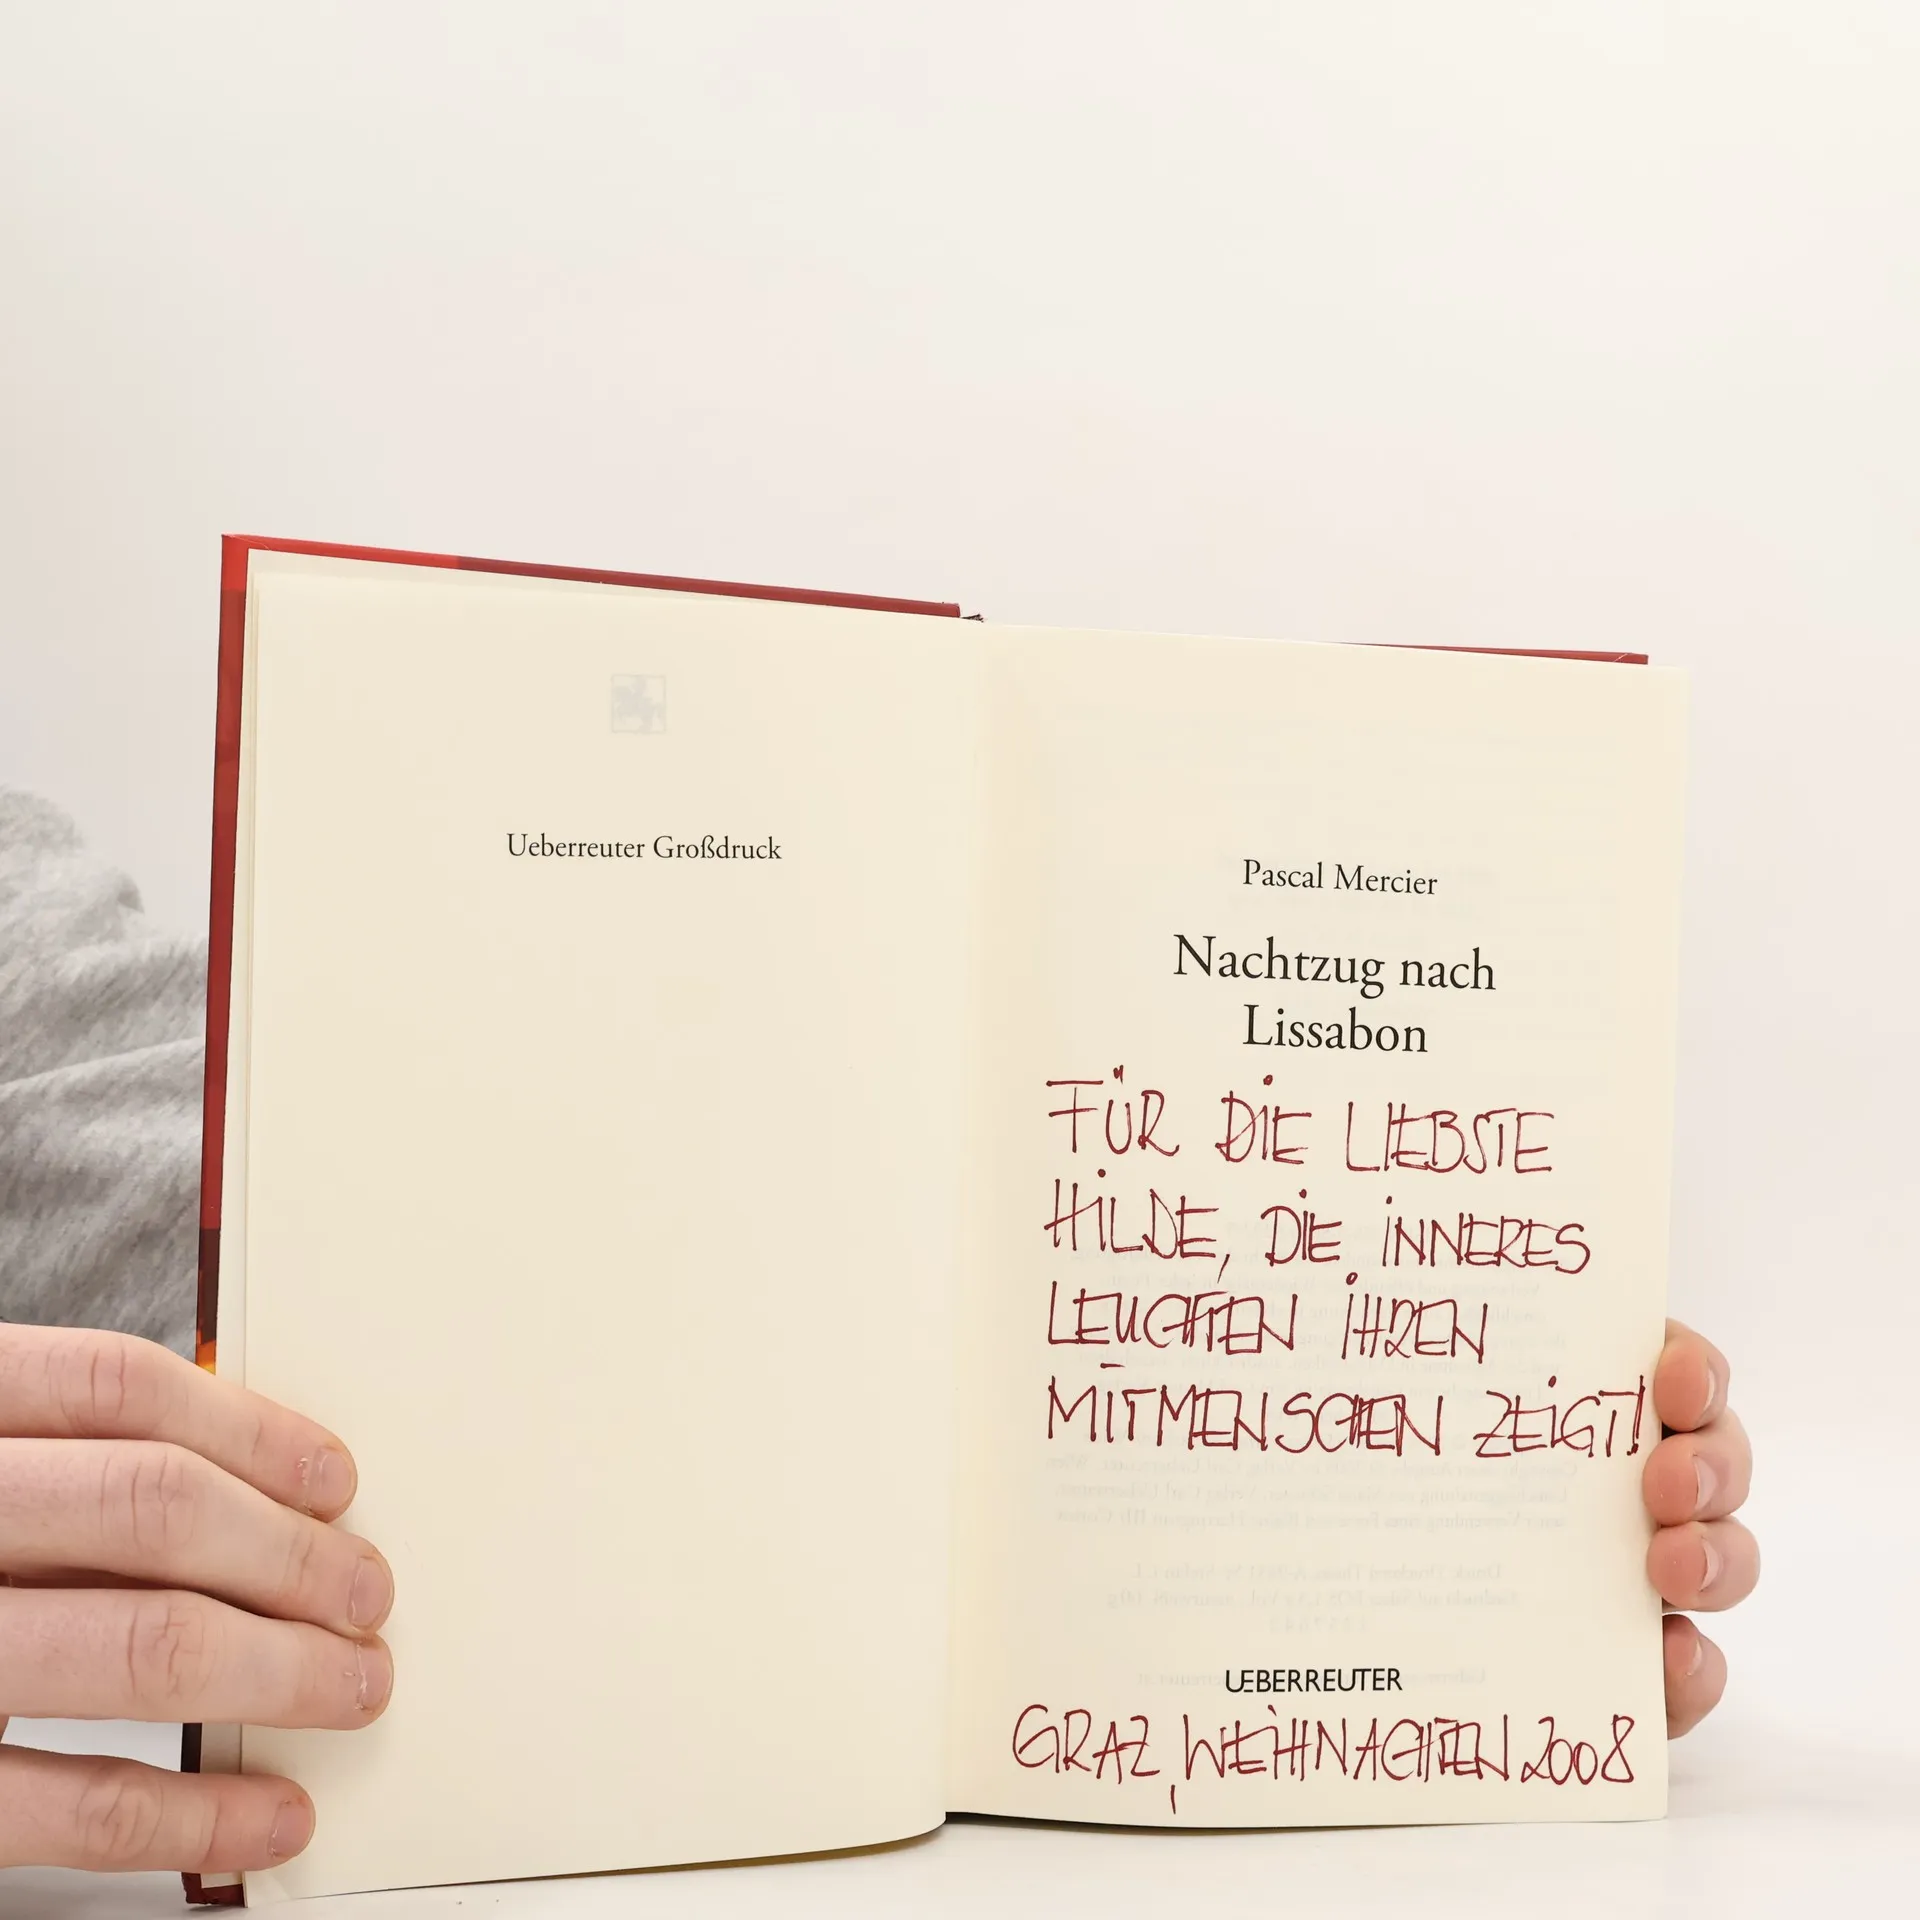 Ueberreuter Großdruck
Pascal Mercier
Nachtzug nach
Lissabon
FÜR DIE LIEBSTE
HILDE, DIE INNERES
LEUCHTEN IHREN
MITMENSCHEN ZEIGT!
UEBERREUTER
GRAZ, WEIHNACHTEN 2008